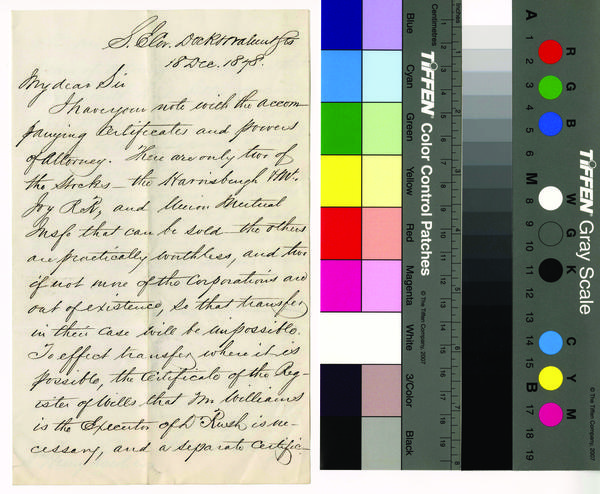 S. E. Cor. Dock & Walnut Sts
18 Dec. 1878.
My dear Sir
I have your note with the accom
panying Certificates and powers
of attorney. There are only two of
the Stocks – the Harrisburgh
Joy R.R, and Union Mutual
Insce that can be sold – the others
are practically worthless, and two
if not more of the Corporations are
out of existence, so that transfer
in their case will be impossible.
To effect transfer, where it is
possible, the Certificate of the Reg-
ister of Wills that Mr Williams
is the Executor of Dr Rush is ne-
cessary, and a separate Certific-
Centimetres
Inches
Blue
Cyan
Green
Yellow
Red
Magenta
White
3/Color
Black
TIFFEN Color Control Patches
© The Tiffen Company, 2007
1
2
3
4
5
6
7
8
9
10
11
12
13
14
15
16
17
18
19
A
1
2
3
4
5
6
M
8
9
10
11
12
13
14
15
B
17
18
19
R
G
B
W
G
K
C
Y
M
TIFFEN Gray Scale
© The Tiffen Company, 2007